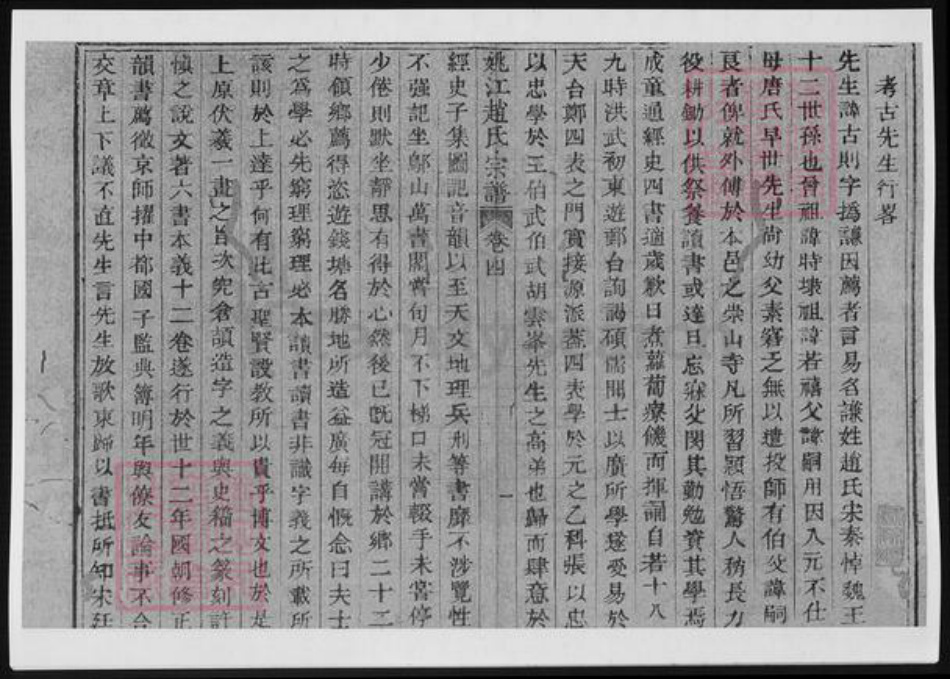 考古先生行畧
先生諱古則字撝謙因薦者言易名謙姓趙氏宋秦悼魏王
十二世孫也曾祖諱時壊祖諱若禧父諱嗣用因入元不仕
母唐氏早世先生尚幼父素窮乏無以遣投師有伯父諱嗣
良者俾就外傅於本邑之崇山寺凡所習穎悟驚人稍長力
役耕鋤以供祭養讀書或達旦忘寐父閔其勤勉資其學焉
成童通經史四書適歲歉日煮蘿蔔療饑而揮誦自若十八
九時洪武初東遊鄞台詢謁碩儒聞士以廣所學遂受易於
天台鄭四表之門實接源派蓋四表學於元之乙科張以忠
以忠學於王伯武伯武胡雲峯先生之高弟也歸而肆意於
姚江趙氏宗譜 卷四 一
經史子集圖記音韻以至天文地理兵刑等書靡不涉覽性
不强記坐鄔山萬書閣嘗旬月不下梯口未嘗輟手未嘗停
少倦則默坐靜思有得於心然後已既冠開講於鄉二十二
時領鄉薦得恣遊錢塘名勝地所造益廣每自慨念曰夫士
之爲學必先窮理窮理必本讀書讀書非識字義之所載所
該則於上達乎何有此古聖賢設教所以貴乎博文也於是
上原伏羲一畫之旨次究倉頡造字之義與史籀之篆刻許
慎之說文著六書本義十二卷遂行於世十二年國朝修正
韻書薦徵京師擢中都國子監典簿明年與僚友論事不合
交章上下議不直先生言先生放歌東歸以書抵所知宋廷